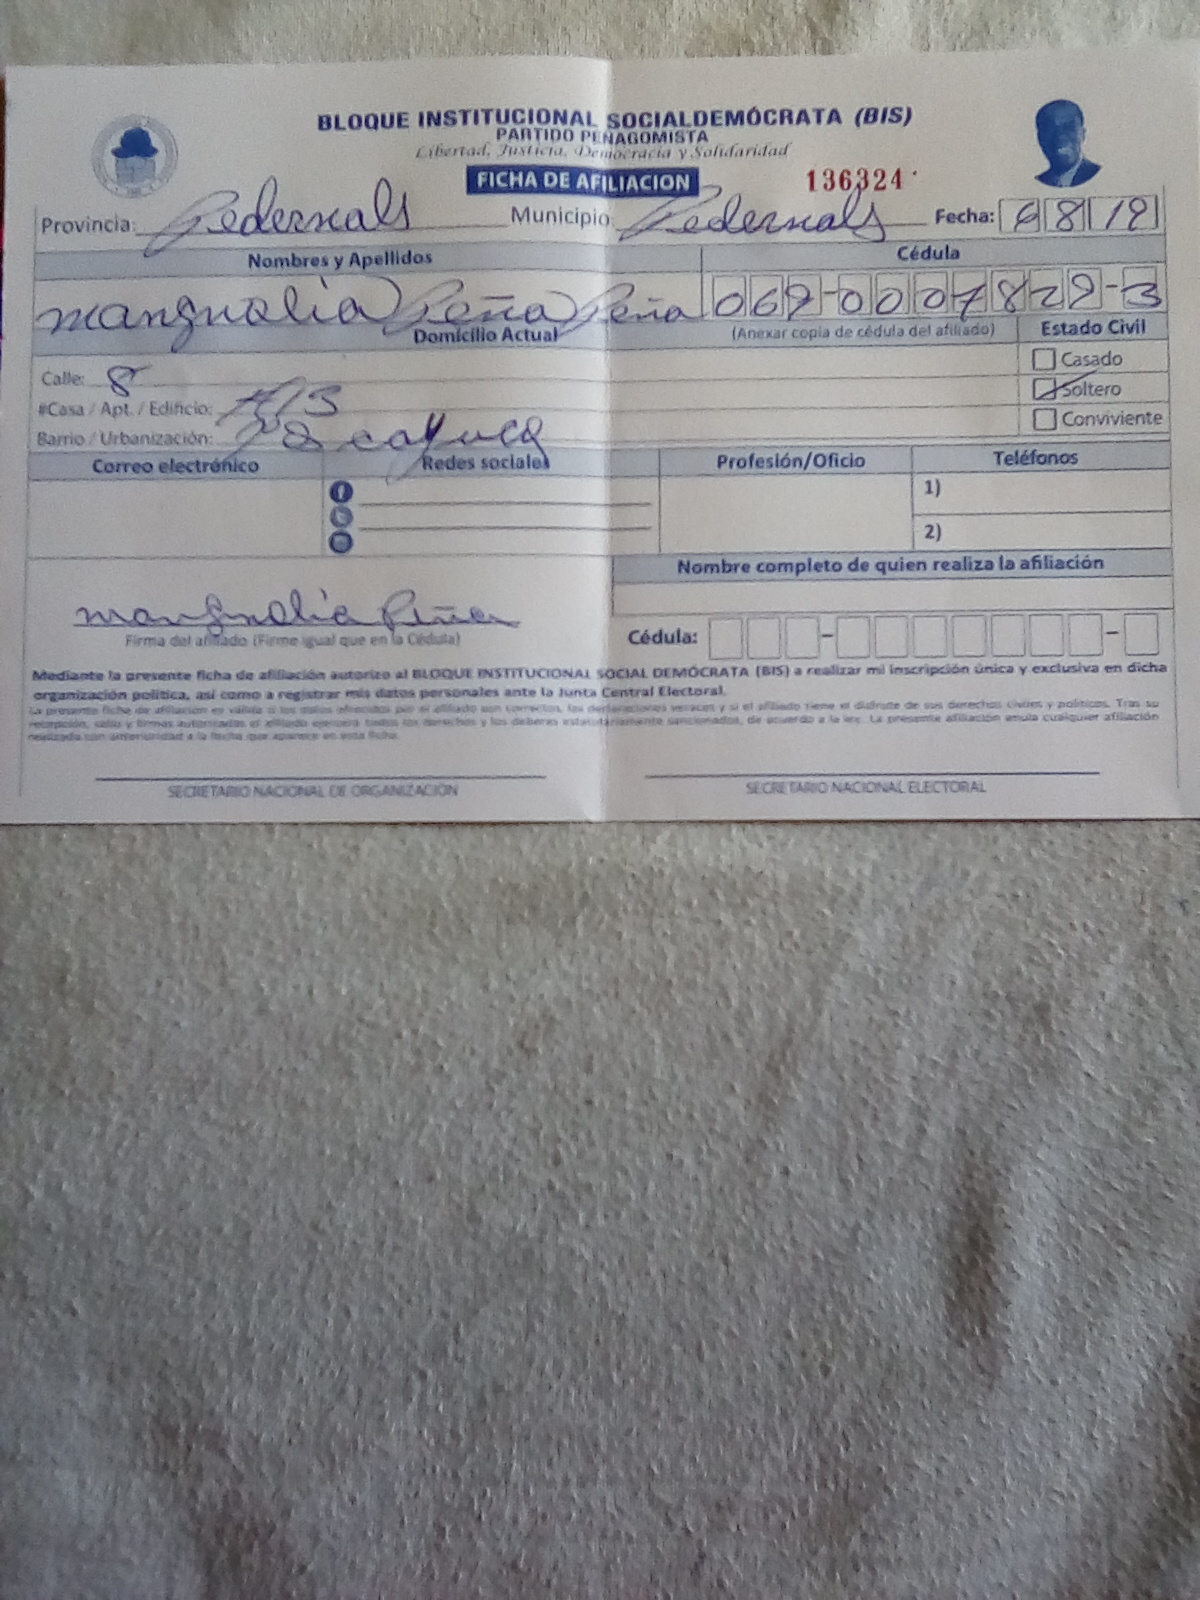 BLOQUE INSTITUCIONAL SOCIALDEMÓCRATA (BIS)
PARTIDO PEÑAGOMISTA
Libertad, Justicia, Democracia y Solidaridad
FICHA DE AFILIACION
136324
Provincia: Pedernals Municipio: Pedernals Fecha: 6 8 19
Nombres y Apellidos Cédula
mangnolia Peña Peña 069-0007829-3
Domicilio Actual (Anexar copia de cédula del afiliado) Estado Civil
Casado
Calle: 8
Soltero
#Casa / Apt. / Edificio:
Conviviente
Barrio / Urbanización:
Correo electrónico Redes sociales Profesión/Oficio Teléfonos
1)
2)
Nombre completo de quien realiza la afiliación
mangnolia Peña
Firma del afiliado (Firme igual que en la Cédula) Cédula:
Mediante la presente ficha de afiliación autorizo al BLOQUE INSTITUCIONAL SOCIAL DEMÓCRATA (BIS) a realizar mi inscripción única y exclusiva en dicha
organización política, así como a registrar mis datos personales ante la Junta Central Electoral.
La presente ficha de afiliación es válida si los datos ofrecidos por el afiliado son correctos, las declaraciones veraces y si el afiliado tiene el disfrute de sus derechos civiles y políticos. Tras su
recepción, sello y firmas autorizadas el afiliado ejercerá todos los derechos y los deberes estatutariamente sancionados, de acuerdo a la ley. La presente afiliación anula cualquier afiliación
realizada con anterioridad a la fecha que aparece en esta ficha.
SECRETARIO NACIONAL DE ORGANIZACIÓN SECRETARIO NACIONAL ELECTORAL